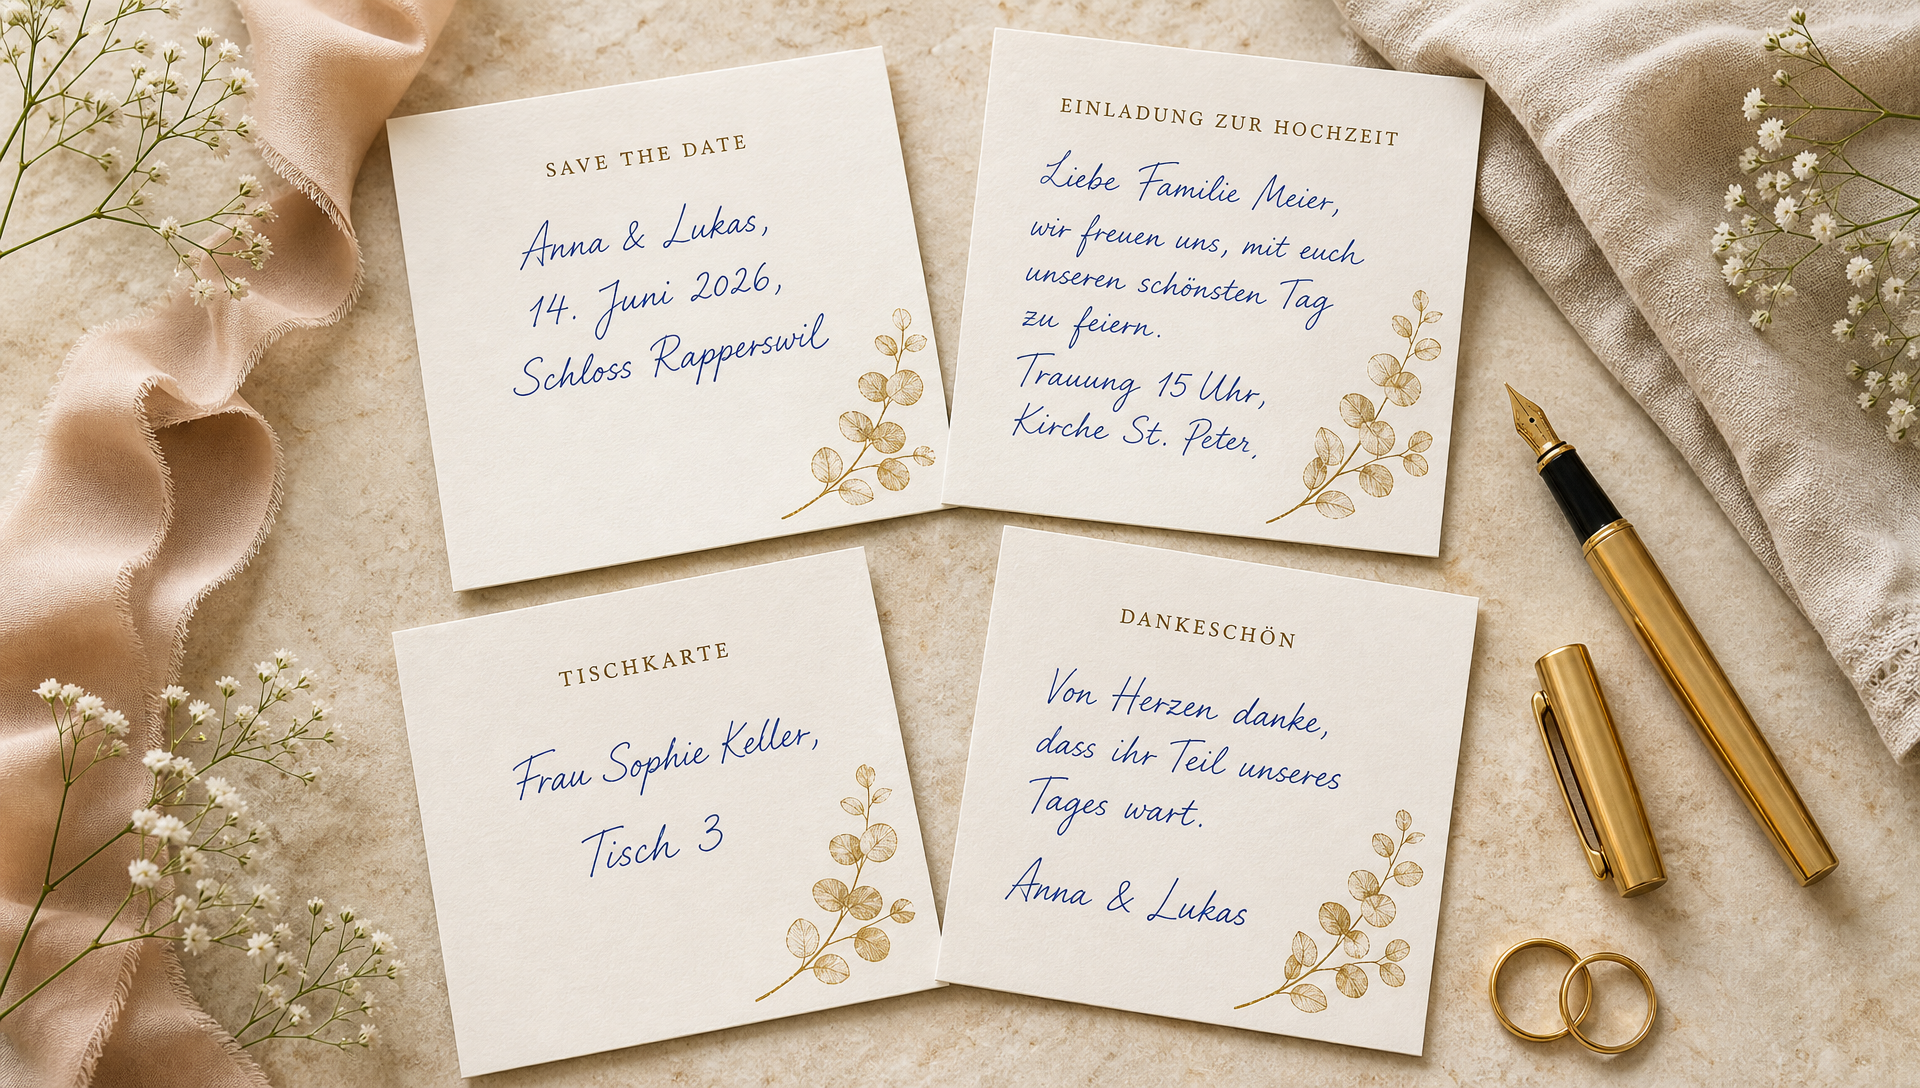 SAVE THE DATE
Anna & Lukas,
14. Juni 2026,
Schloss Rapperswil
EINLADUNG ZUR HOCHZEIT
Liebe Familie Meier,
wir freuen uns, mit euch
unseren schönsten Tag
zu feiern.
Trauung 15 Uhr,
Kirche St. Peter.
TISCHKARTE
Frau Sophie Keller,
Tisch 3
DANKESCHÖN
Von Herzen danke,
dass ihr Teil unseres
Tages wart.
Anna & Lukas